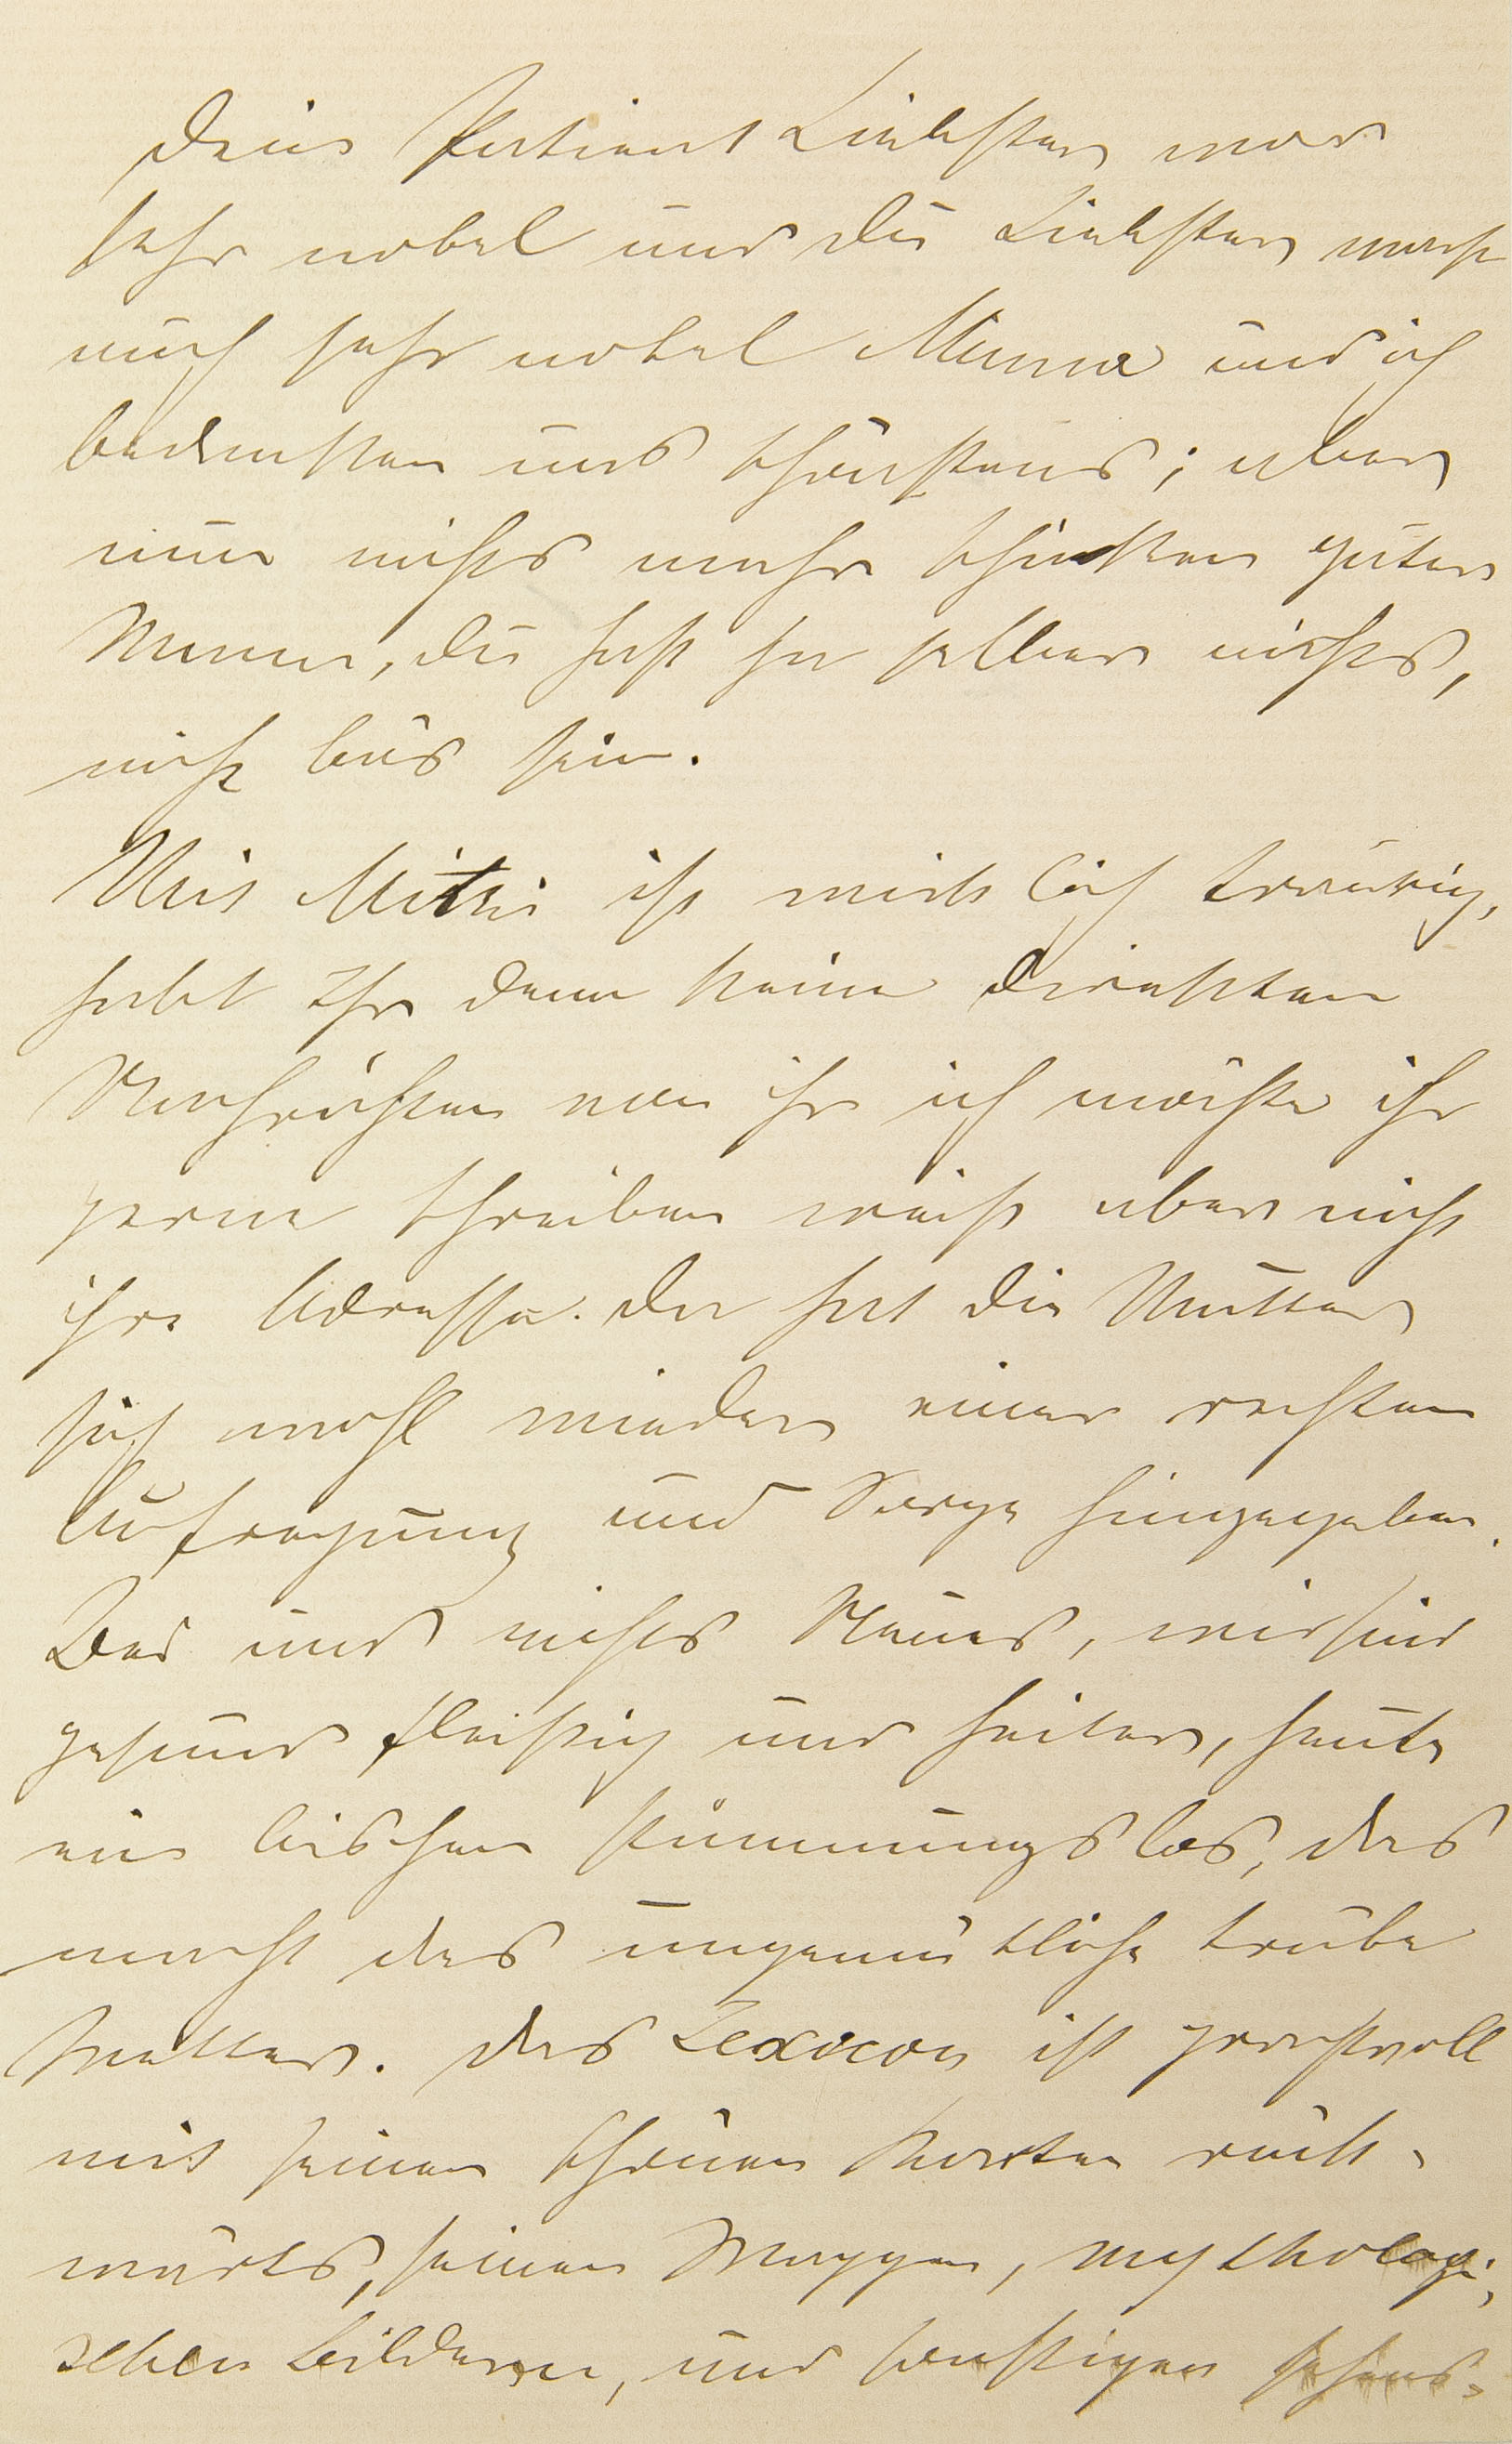 Dein Patient Liebster war
sehr nobel und Du Liebster machst
mich sehr nobel Minna und ich
bedanken uns schönstens; aber
nun nichts mehr schicken guter
Mann, Du hast ja selber nichts,
nicht bös sein.
Mit Mitzi ist wirklich traurig,
habt Ihr denn keine direkten
Nachrichten von ihr ich möchte ihr
gerne schreiben weiß aber nicht
ihre Adresse. Da hat die Mutter
sich wohl wieder einer rechten
Aufregung und Sorge hingegeben.
Bei uns nichts Neues, wir sind
gesund fleißig und heiter, heute
ein bischen stimmungslos, das
macht das ungemütliche trübe
Wetter. Das Lexicon ist prachtvoll
mit seinen schönen Karten rück-
wärts, seinen Wappen, mythologi-
schen Bildern, und sonstigen